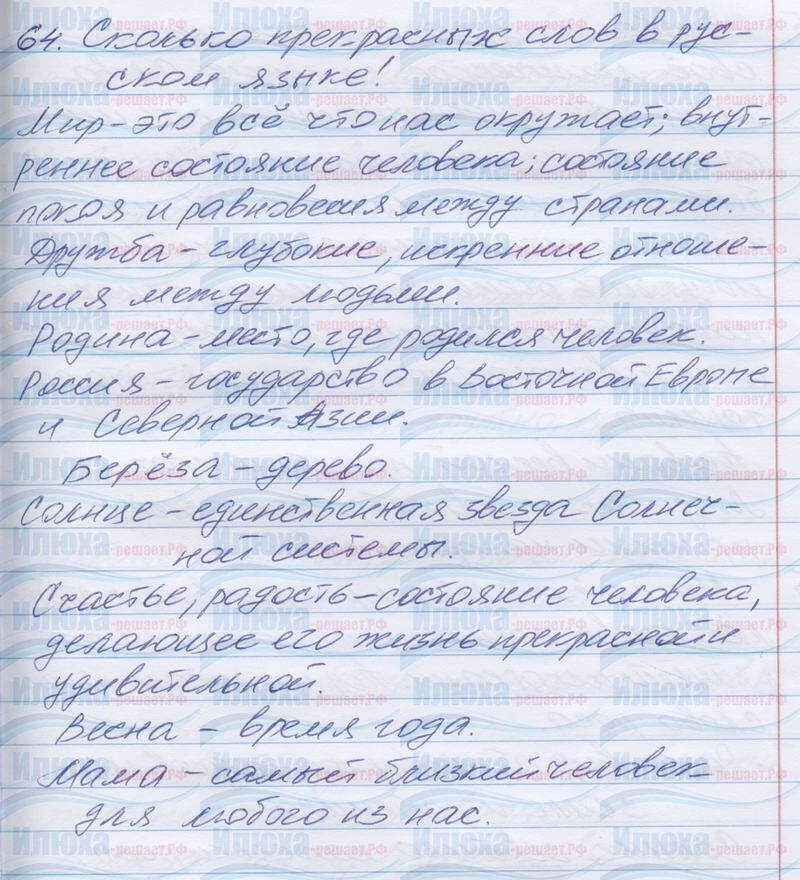 64. Сколько прекрасных слов в рус-
ском языке!
Мир - это всё что нас окружает; внут-
реннее состояние человека; состояние
покоя и равновесия между странами.
Дружба - глубокие, искренние отноше-
ния между людьми.
Родина - место, где родился человек.
Россия - государство в Восточной Европе
и Северной Азии.
Берёза - дерево.
Солнце - единственная звезда Солнеч-
ной системы.
Счастье, радость - состояние человека,
делающее его жизнь прекрасной и
удивительной.
Весна - время года.
Мама - самый близкий человек
для любого из нас.